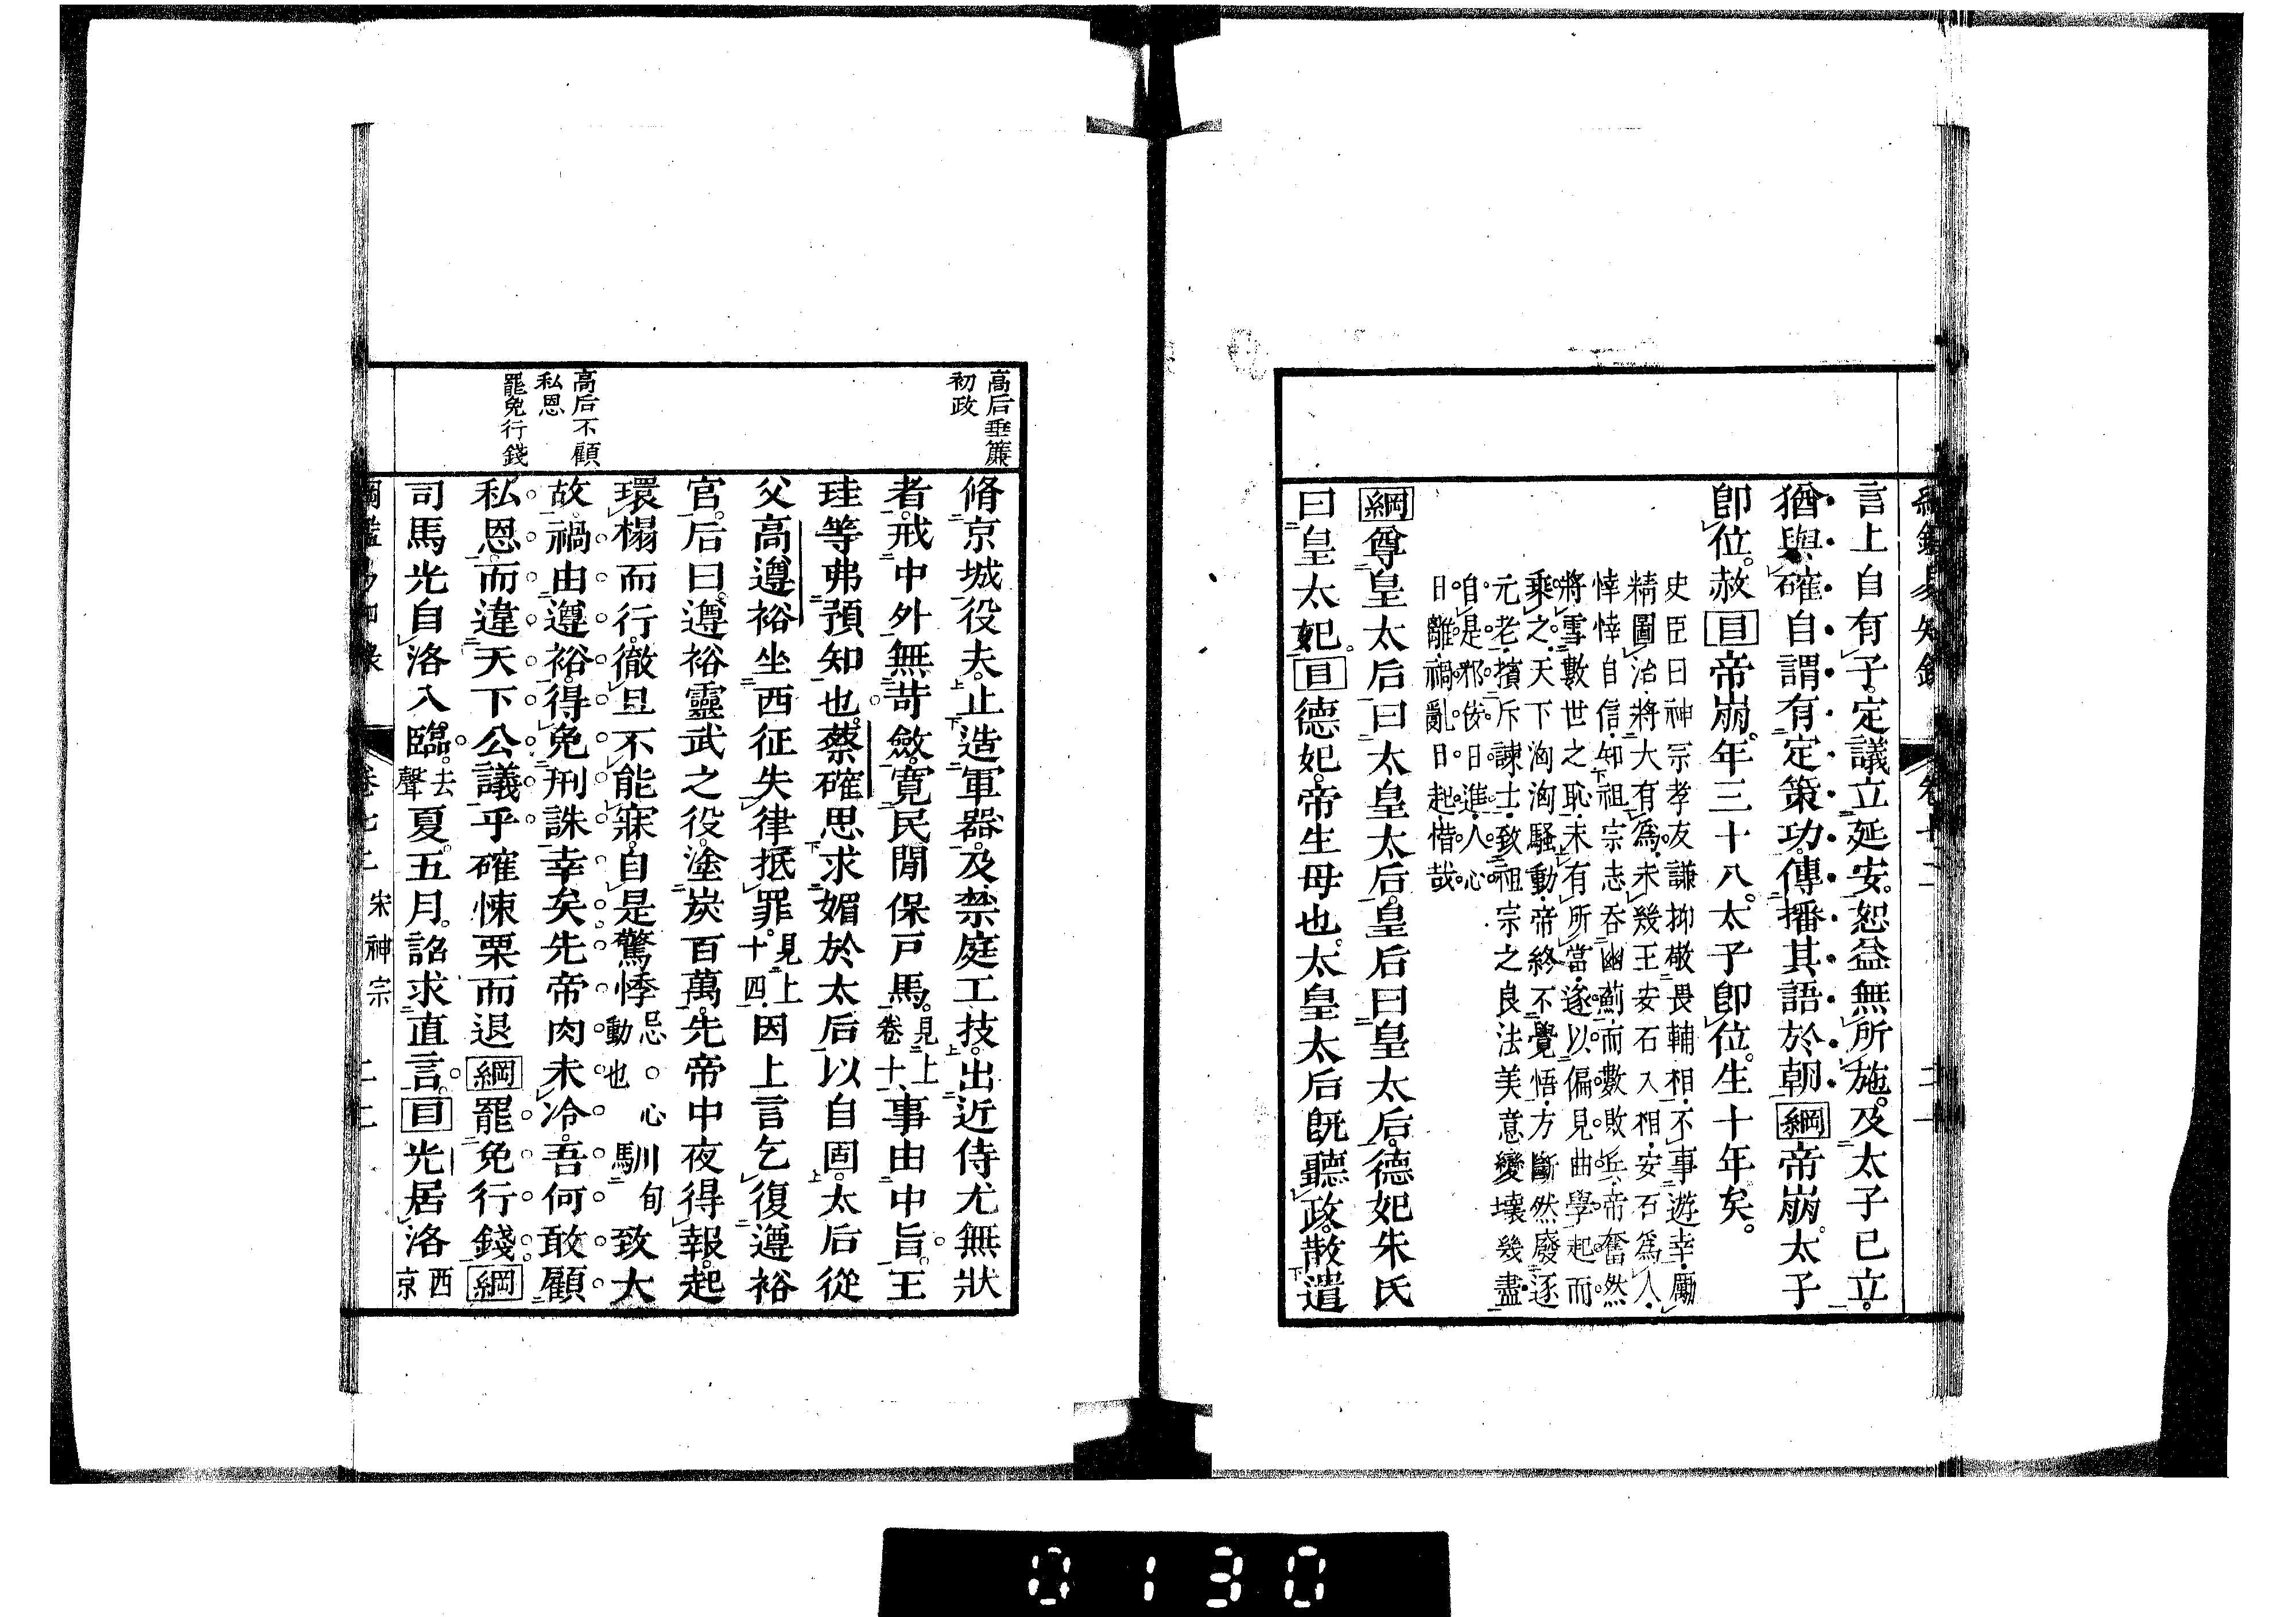 言上自有子定議立延安恕益無所施及太子已立
猶與確自謂有定策功傳播其語於朝綱帝崩太子
即位赦目帝崩年三十八太子即位生十年矣
史臣曰神宗孝友謙抑敬畏輔相不事遊幸勵
精圖治將大有為未幾王安石入相安石為人
悻悻自信知祖宗志吞幽薊而數敗兵帝奮然
將雪數世之恥未有所當遂以偏見曲學起而
乘之天下洶洶騷動帝終不覺悟方斷然廢逐
元老擯斥諫士致祖宗之良法美意變壞幾盡
自是邪佞日進人心
日離禍亂日起惜哉
綱尊皇太后曰太皇太后皇后曰皇太后德妃朱氏
曰皇太妃目德妃帝生母也太皇太后既聽政散遣
高后垂簾
初政
脩京城役夫止造軍器及禁庭工技出近侍尤無狀
者戒中外無苛斂寬民間保戶馬見上卷十事由中旨王
珪等弗預知也蔡確思求媚於太后以自固太后從
父高遵裕坐西征失律抵罪見上十四因上言乞復遵裕
官后曰遵裕靈武之役塗炭百萬先帝中夜得報起
環榻而行徹旦不能寐自是驚悸忌心動也馴旬致大
高后不顧
私恩
故禍由遵裕得免刑誅幸矣先帝肉未冷吾何敢顧
罷免行錢
私恩而違天下公議乎確悚栗而退綱罷免行錢綱
司馬光自洛入臨去聲夏五月詔求直言目光居洛西京
宋神宗
0130